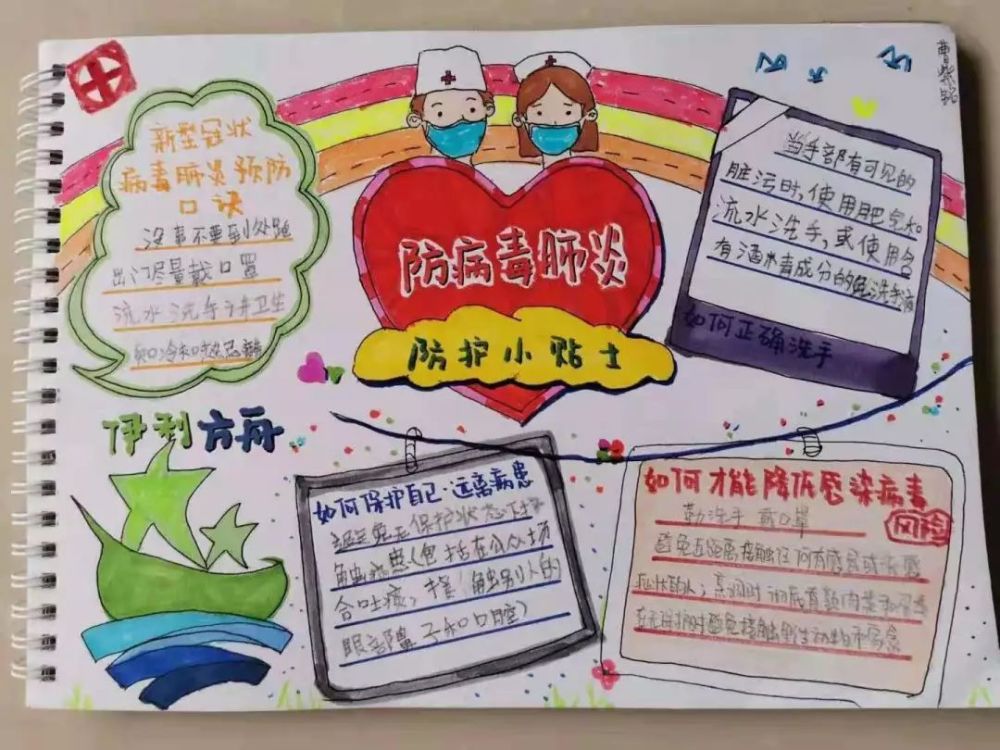 新型冠状
病毒肺炎预防
口诀
没事不要到处跑
出门尽量戴口罩
流水洗手讲卫生
防病毒肺炎
防护小贴士
当手部有可见的
脏污时,使用肥皂水
流水洗手,或使用含
有酒精毒成分的免洗手液
如何正确洗手
伊利方舟
如何保护自己·远离病患
避免无保护状态下接
触病患(包括在公众场
合吐痰,接触别人的
眼
子和口腔)
如何才能降低感染病毒
风险
勤洗手 戴口罩
避免近距离接触任何有感冒或流感
症状的人;烹调时彻底煮熟肉类和
在无防护时避免接触野生动物